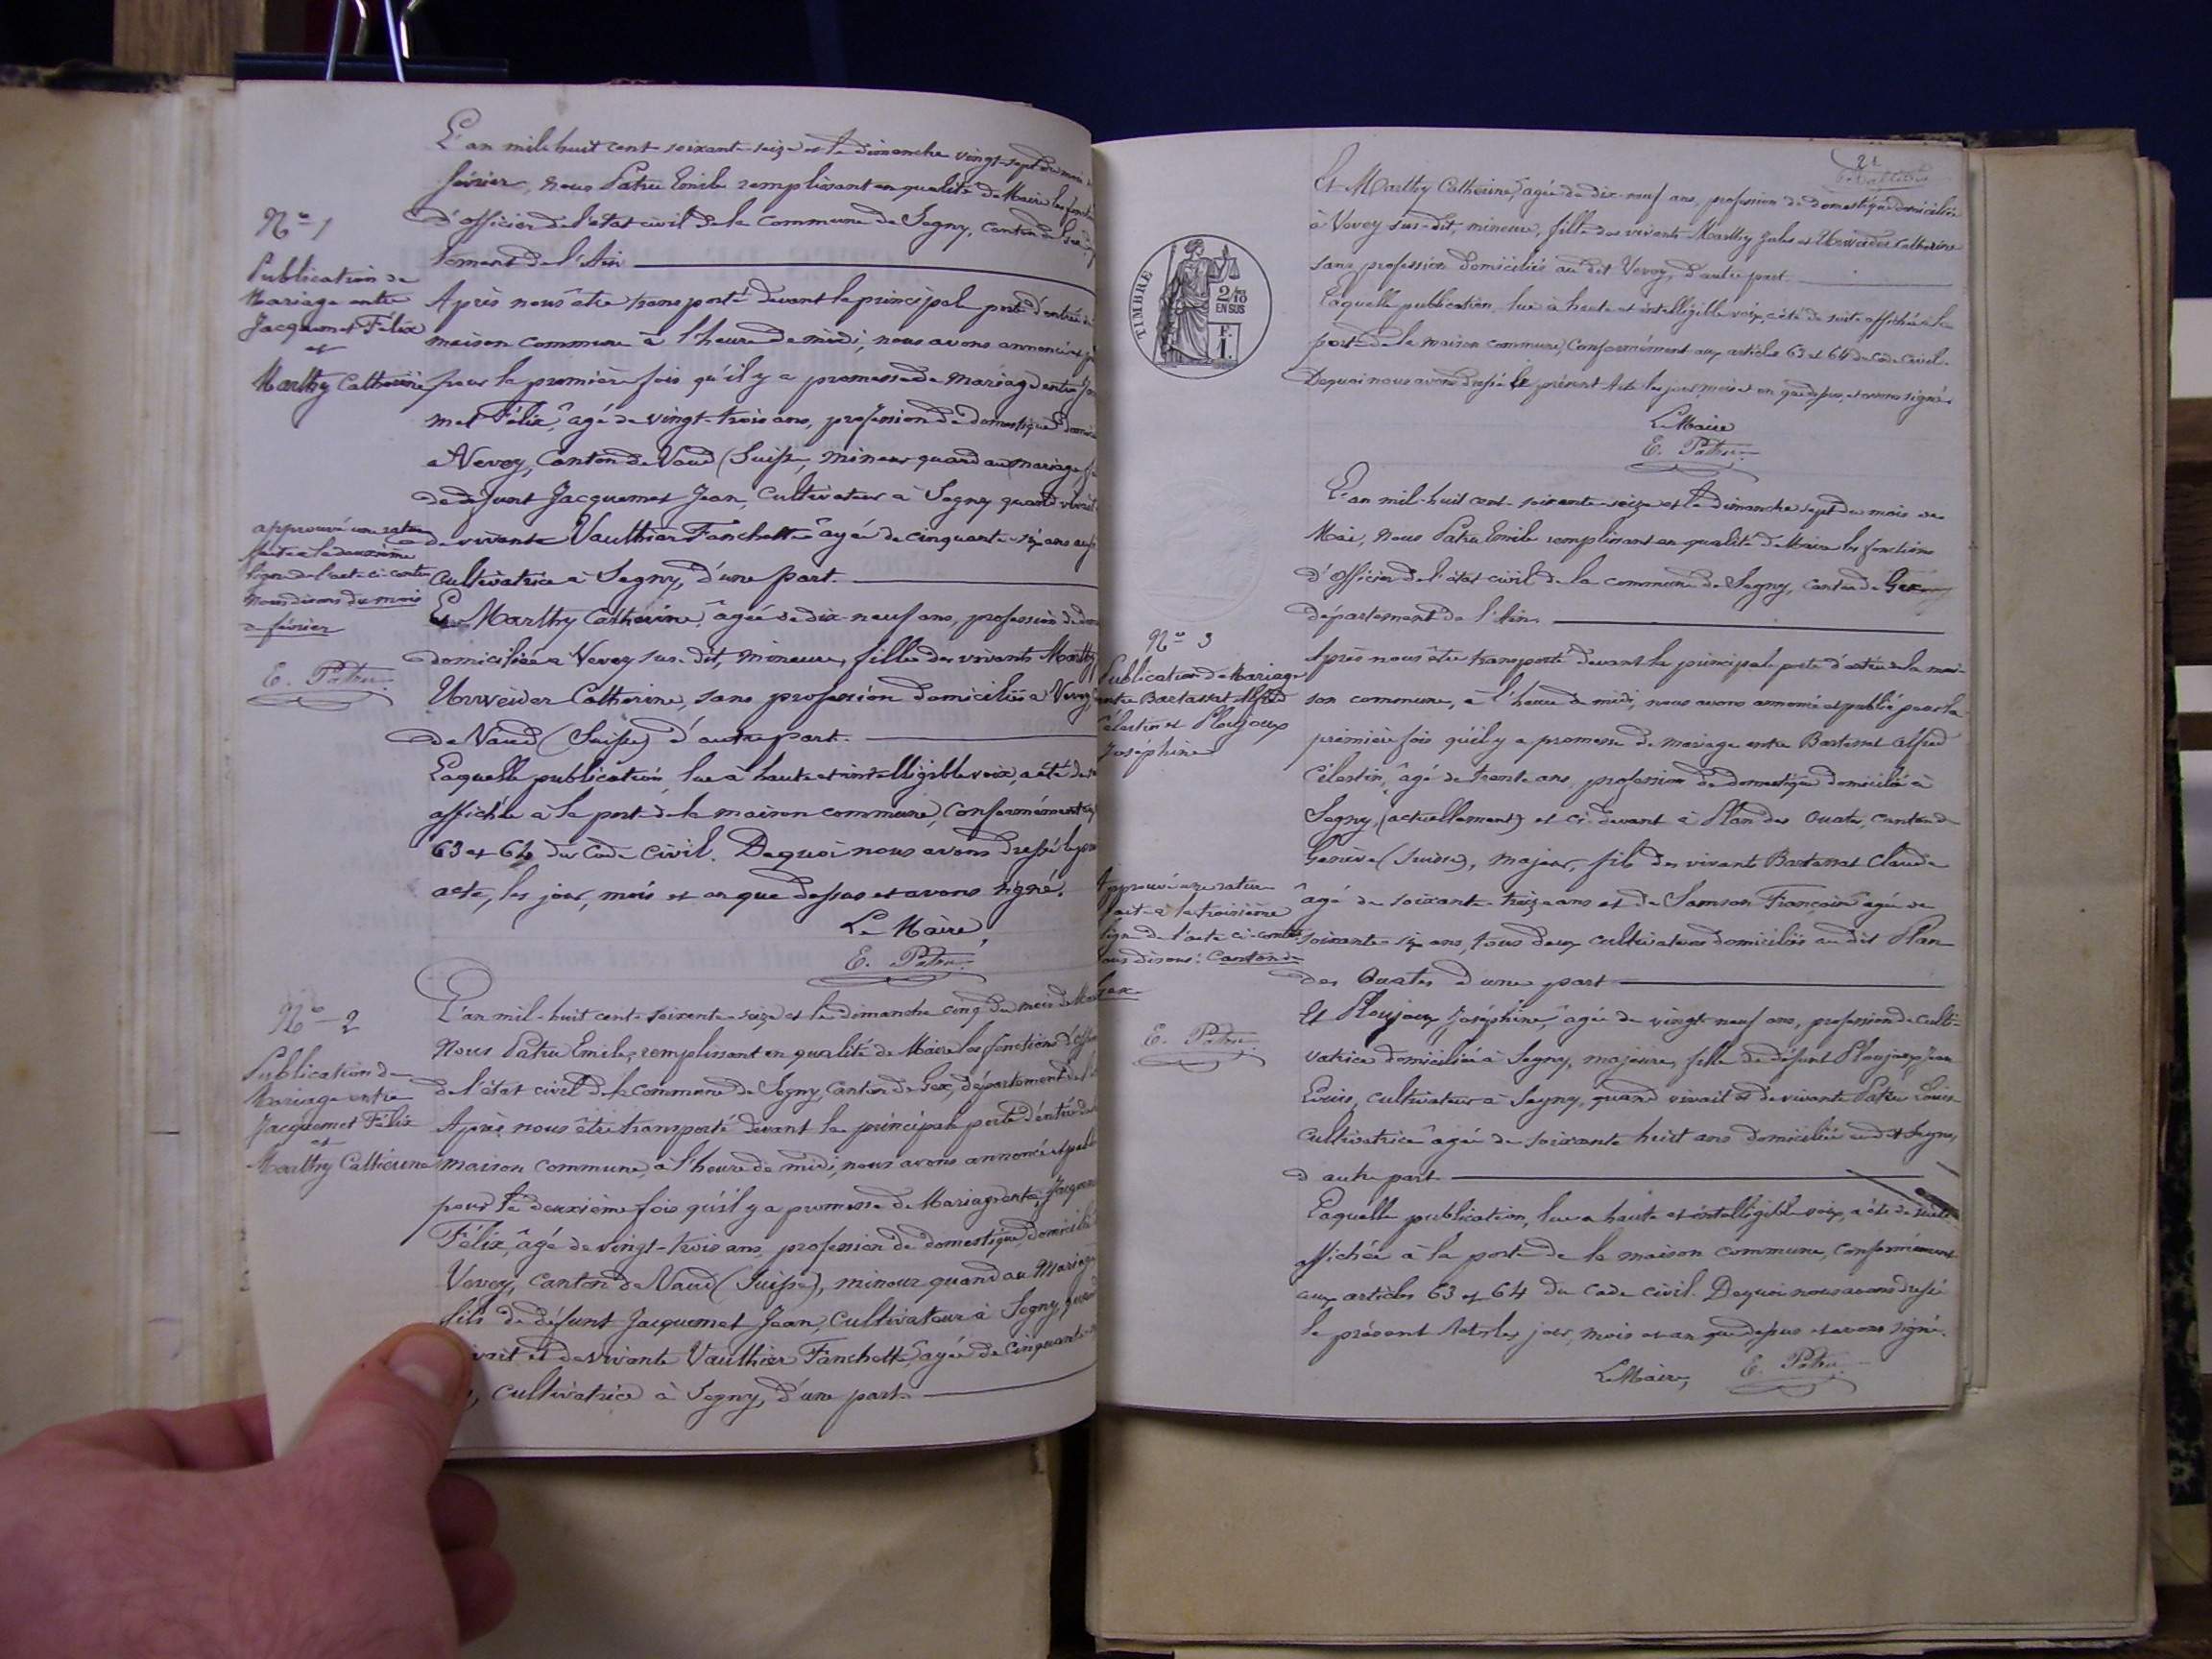 N° 1
Publication de
Mariage entre
Jacquemet Félix
et
Marthy Catherine
L'an mil huit cent soixante-seize et le dimanche vingt-sept du mois
février, nous Patru Emile remplissant en qualité de Maire les
d'officier de l'état civil de la commune de Segny, canton de Gex
tement de l'Ain
Après nous être transporté devant la principale porte d'entrée
maison commune à l'heure de midi, nous avons annoncé et
pour la première fois qu'il y a promesse de mariage entre
met Félix, âgé de vingt-trois ans, profession de domestique
a Vevey, Canton de Vaud (Suisse, mineur quand au mariage
de défunt Jacquemet Jean, Cultivateur à Segny quand vivait
de vivante Vauthier Fanchette âgée de cinquante-six ans
cultivatrice à Segny, d'une part.
Et Marthy Catherine, âgée de dix-neuf ans, profession de
domiciliée a Vevey sus-dit, mineure, fille des vivants Marthy
Urweider Catherine, sans profession domiciliés a Vevey
de Vaud (Suisse) d'autre part.
Laquelle publication, lue à haute et intelligible voix, a été de
affichée à la porte de la maison commune, Conformément
63 et 64 du Code Civil. De quoi nous avons dressé le
acte, les jour, mois et an que dessus et avons signé.
Le Maire,
E. Patru
approuvé une rature
faite à la deuxième
ligne de l'acte ci-contre
nous disons du mois
de février
E. Patru
N° 2
Publication de
Mariage entre
Jacquemet Félix
et
Marthy Catherine
L'an mil-huit cent-soixante-seize et le dimanche cinq du mois de
Nous Patru Emile, remplissant en qualité de Maire les fonctions
de l'état civil de la commune de Segny, Canton de Gex, département de
Après nous être transporté devant la principale porte d'entrée de
maison commune, à l'heure de midi, nous avons annoncé et
pour la deuxième fois qu'il y a promesse de Mariage entre
Félix, âgé de vingt-trois ans, profession de domestique, domicilié
Vevey, Canton de Vaud (Suisse), mineur quand au Mariage
fils de défunt Jacquemet Jean, Cultivateur à Segny, quand
et de vivante Vauthier Fanchette, âgée de Cinquante
cultivatrice à Segny, d'une part.
TIMBRE
2/10
EN SUS
F.
I.
Et Marthy Catherine, âgée de dix-neuf ans, profession de domestique domiciliée
à Vevey sus-dit, mineure, fille des vivants Marthy Jules et Urweider Catherine
sans profession domiciliés au dit Vevey, d'autre part.
Laquelle publication, lue à haute et intelligible voix, a été de suite affichée à la
porte de la maison commune, Conformément aux articles 63 et 64 du Code Civil.
De quoi nous avons dressé le présent Acte les jour, mois et an que dessus, et avons signé.
Le Maire
E. Patru
L'an mil-huit cent-soixante-seize et le dimanche sept du mois de
Mai, Nous Patru Emile remplissant en qualité de Maire les fonctions
d'officier de l'état civil de la commune de Segny, canton de Gex
département de l'Ain.
N° 3
Publication de Mariage
entre Bartassat Alfred
Célestin et Ploujoux
Joséphine
Après nous être transporté devant la principale porte d'entrée de la mai-
son commune, à l'heure de midi, nous avons annoncé et publié pour la
première fois qu'il y a promesse de mariage entre Bartassat Alfred
Célestin, âgé de trente ans, profession de domestique domicilié à
Segny, (actuellement) et ci-devant à Plan des Ouates, canton de
Genève (Suisse), majeur, fils des vivants Bartassat Claude
âgé de soixante-treize ans et de Samson Françoise âgée de
soixante-six ans, tous deux cultivateurs domiciliés au dit Plan
des Ouates d'une part
Approuvé une rature
faite à la troisième
ligne de l'acte ci-contre
nous disons: Canton de
Gex.
E. Patru
Et Ploujoux Joséphine, âgée de vingt-neuf ans, profession de culti-
vatrice domiciliée à Segny, majeure, fille de défunt Ploujoux Jean
Louis, cultivateur à Segny, quand vivait et de vivante Patru Louise
cultivatrice âgée de soixante huit ans domiciliée au dit Segny,
d'autre part
Laquelle publication, lue a haute et intelligible voix, a été de suite
affichée à la porte de la maison commune, conformément
aux articles 63 et 64 du Code civil. De quoi nous avons dressé
le présent Acte les jour, mois et an que dessus et avons signé.
Le Maire, E. Patru